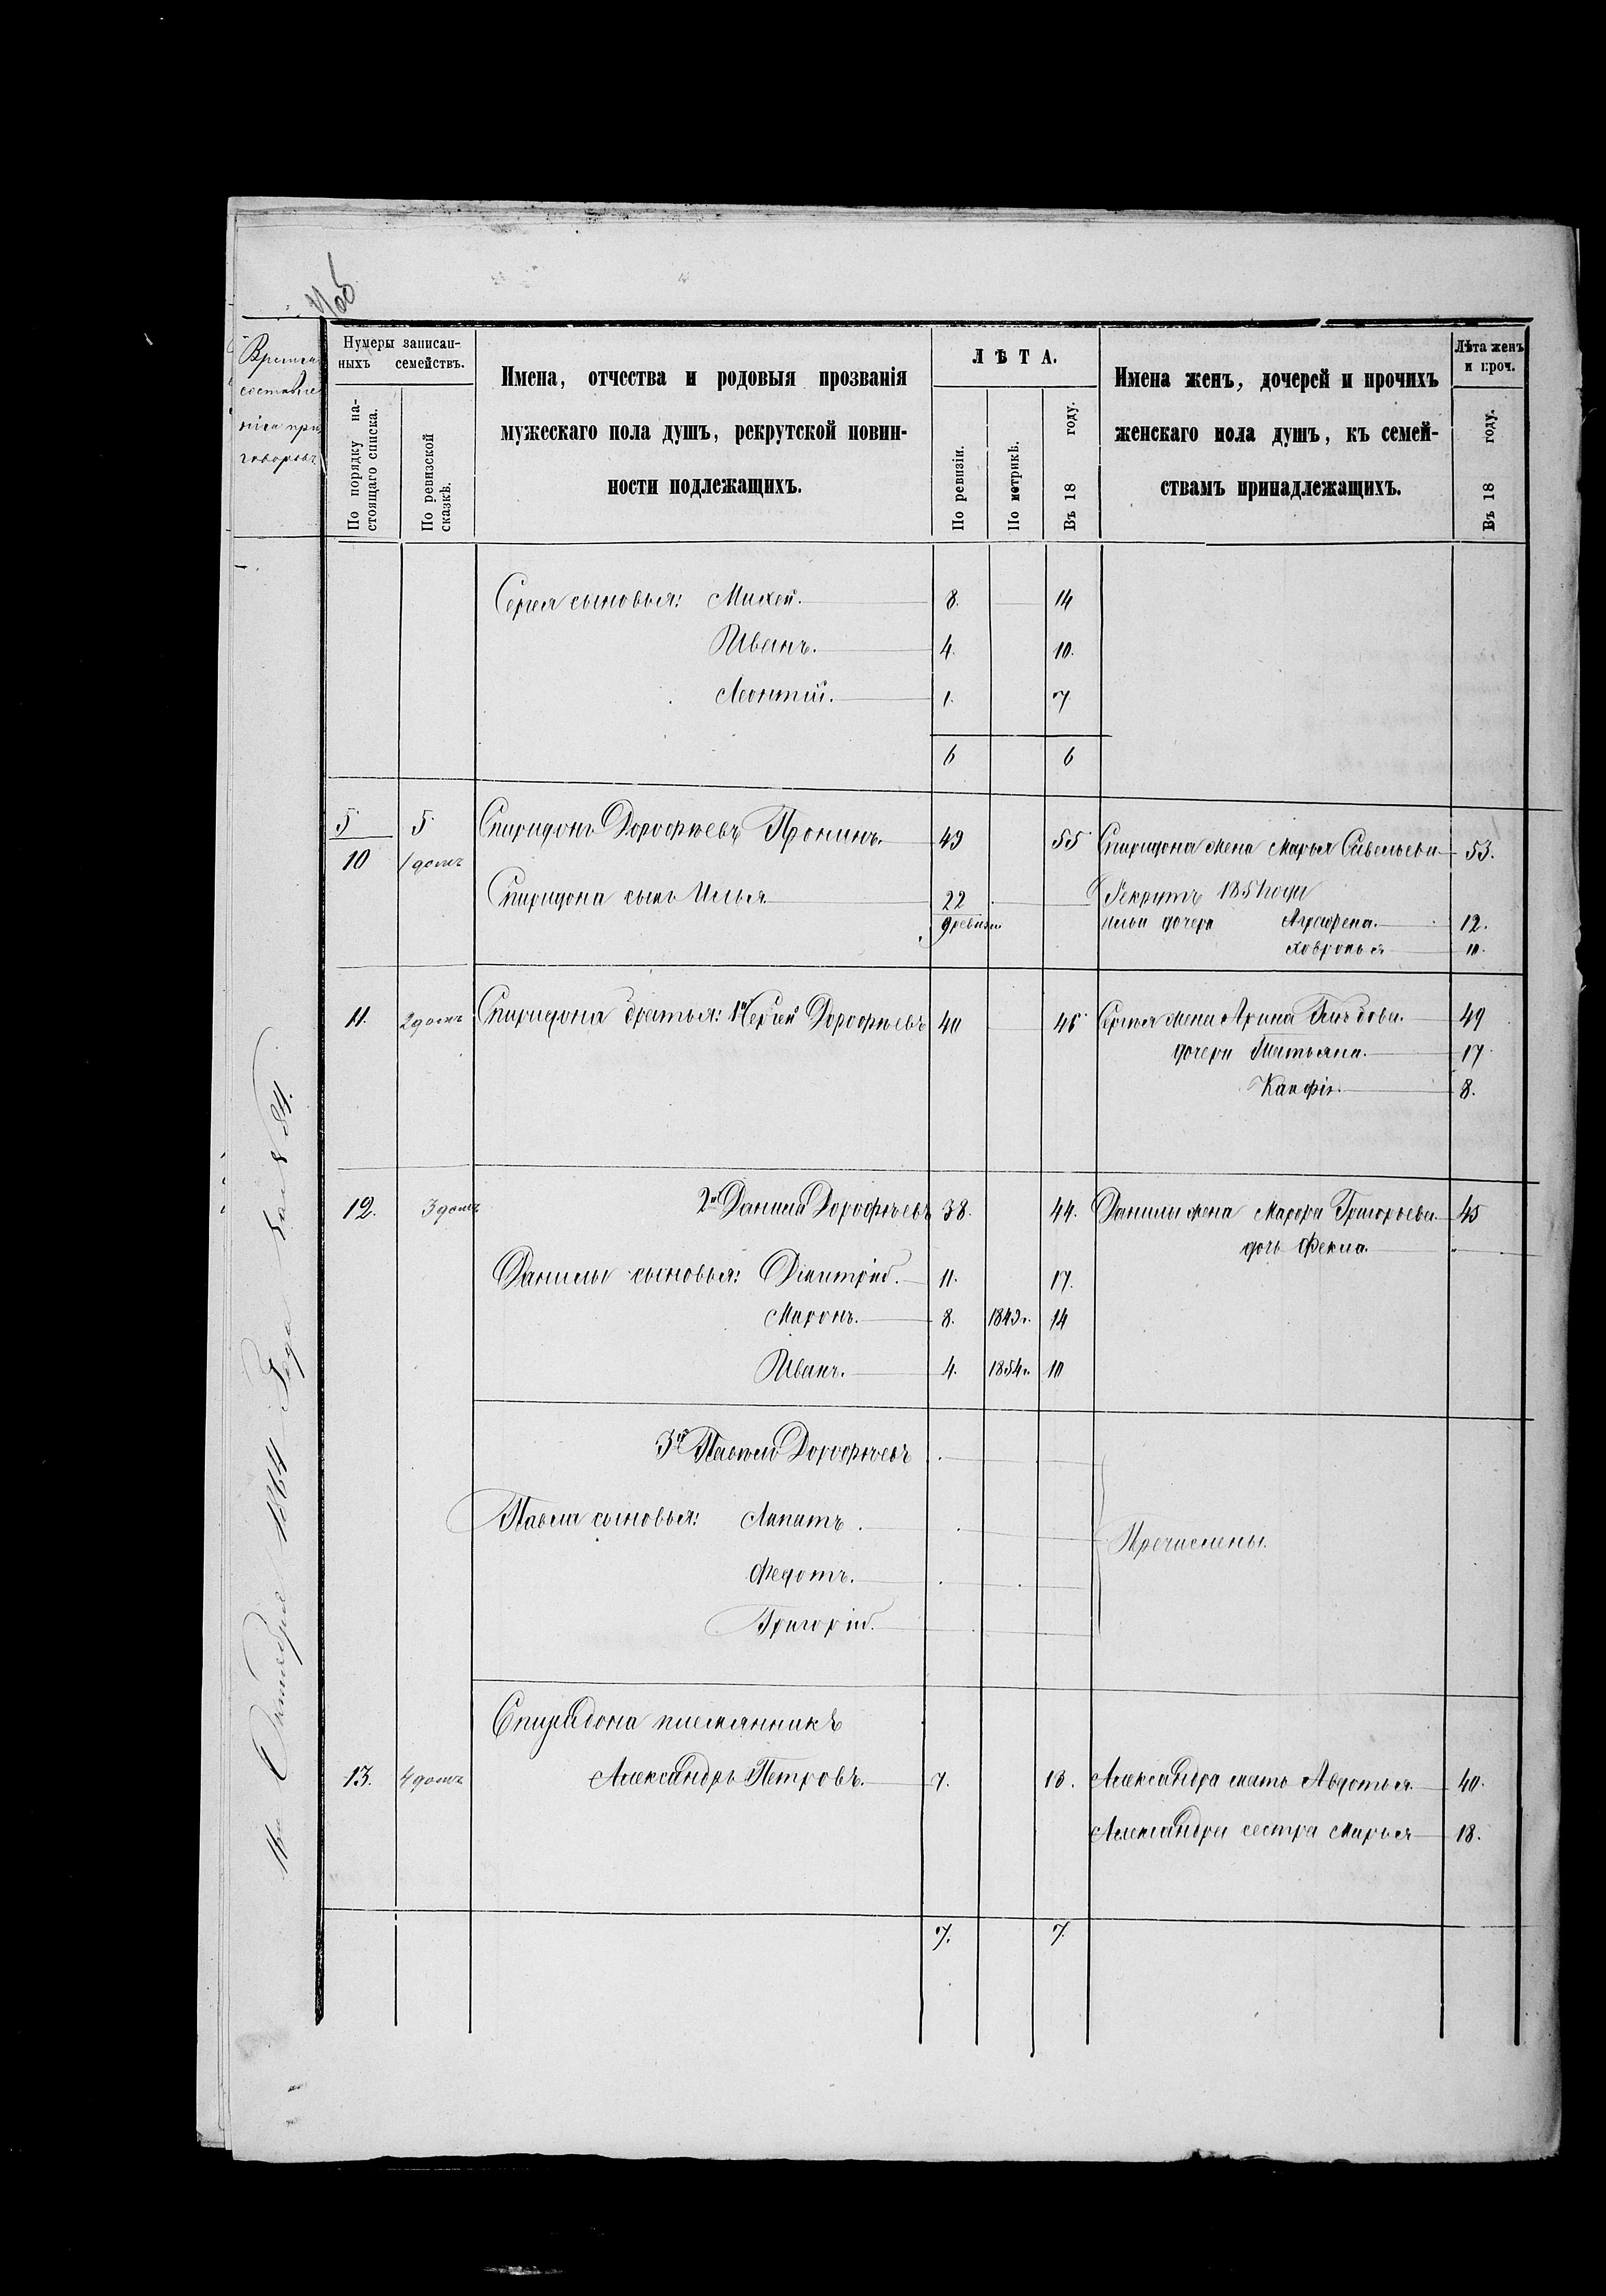 Время
составле
нія при
говоровъ
Нумеры записан-
ныхъ семействъ.
По порядку на-
стоящаго списка.
По ревизской
сказкѣ.
Имена, отчества и родовыя прозванія
мужескаго пола душъ, рекрутской повин-
ности подлежащихъ.
ЛѢТА.
По ревизіи.
По метрикѣ.
Въ 18 году.
Имена женъ, дочерей и прочихъ
женскаго пола душъ, къ семей-
ствамъ принадлежащихъ.
Лѣта женъ
и проч.
Въ 18 году.
Сергея сыновья: Михей. 8. 14
Иванъ. 4. 10.
Леонтій. 1. 7
6 6
5 5 Спиридонъ Дорофѣевъ Пронинъ. 49 55 Спиридона жена Марья Савельева 53.
10 1 домъ
Спиридона сынъ Илья 22 Рекрутъ 1851 года
9 ревизіи Ильи дочери Аграфена. 12.
Ховронья 10.
11. 2 домъ Спиридона братья: 1й Сергей Дорофѣевъ 40 46 Сергея жена Арина 49
дочери Татьяна. 17.
8.
12. 3 домъ 2й Данила Дорофѣевъ 38. 44. Данилы жена Марфа Григорьева 45
дочь Фекла.
Данилы сыновья: Дмитрій. 11. 17.
Миронъ. 8. 1849г. 14
Иванъ. 4. 1854г. 10
3й Павелъ Дорофѣевъ
Павла сыновья: Липатъ.
Причислены.
Федотъ.
Григорій.
Спиридона племянникъ
13. 4 домъ Александръ Петровъ. 7. 13. Александра мать Авдотья 40.
Александра сестра Марья 18.
7. 7.
11го Октября 1864 Года